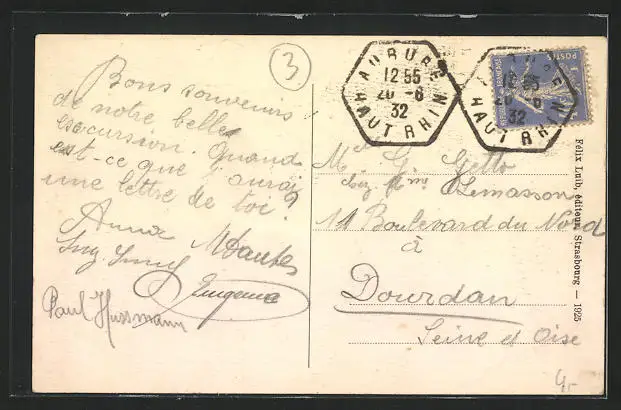 3
Bons souvenirs
de notre belle
excursion. Quand
est-ce que j'aurai
une lettre de toi?
Anna
Eugenie
Paul Hussmann
AUBURE
12 55
20 - 6
32
HAUT RHIN
12 55
20 - 6
32
HAUT RHIN
POSTES
G. Getto
chez Mme Lemasson
14 Boulevard du Nord
à
Dourdan
Seine et Oise
Félix Luib, éditeur, Strasbourg — 1925